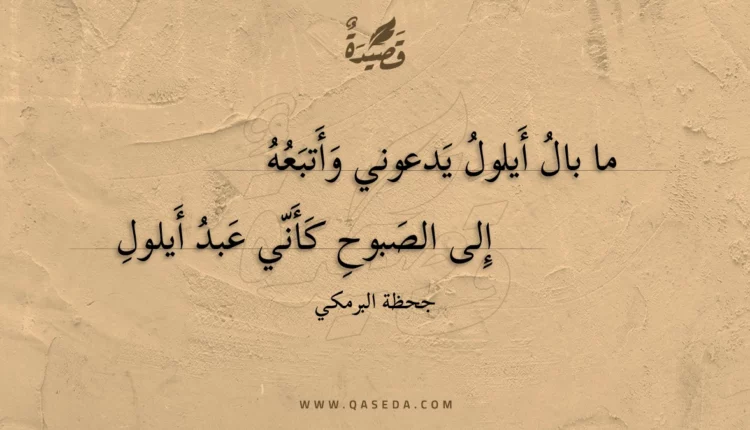 قَصِيْدَةٌ
ما بالُ أَيلولُ يَدعوني وَأَتبَعُهُ
إِلى الصَبوحِ كَأَنّي عَبدُ أَيلولِ
جحظة البرمكي
WWW.QASEDA.COM